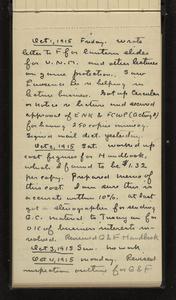 Oct 1, 1915 Friday. Wrote
letter to F for lantern slides
for U.N.M. and other lectures
on game protection. Saw
Lawrence Lee is helping in
lecture business. Got up circular
on notice re lecture and secured
approval of ENK & FCWP (Acting D)
for having 250 copies mimeog.
Signed mail dict. yesterday.
Oct 2, 1915 Sat. Worked up
cost figures for Handbook,
which I found to be $1.32
per copy. Prepared memo of
this cost. I am sure this is
accurate within 10%. At last
got a stenographer for sending
G.C. material to
OIC of business interests in-
volved. Reviewed G&F Handbook
Oct 3, 1915 Sun. No work
Oct 4, 1915 Monday. Revised
inspection outline for G&F